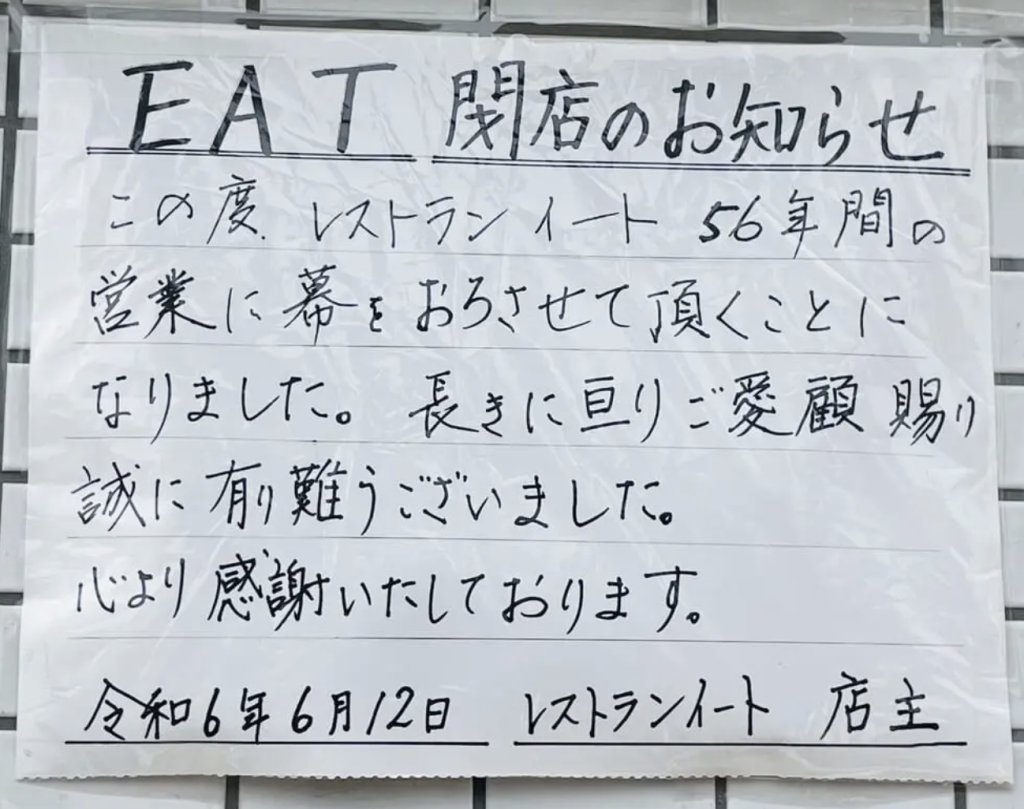 EAT 閉店のお知らせ
この度、レストランイート 56年間の
営業に幕をおろさせて頂くことに
なりました。長きに亘りご愛顧賜り
誠に有り難うございました。
心より感謝いたしております。
令和6年6月12日 レストランイート 店主